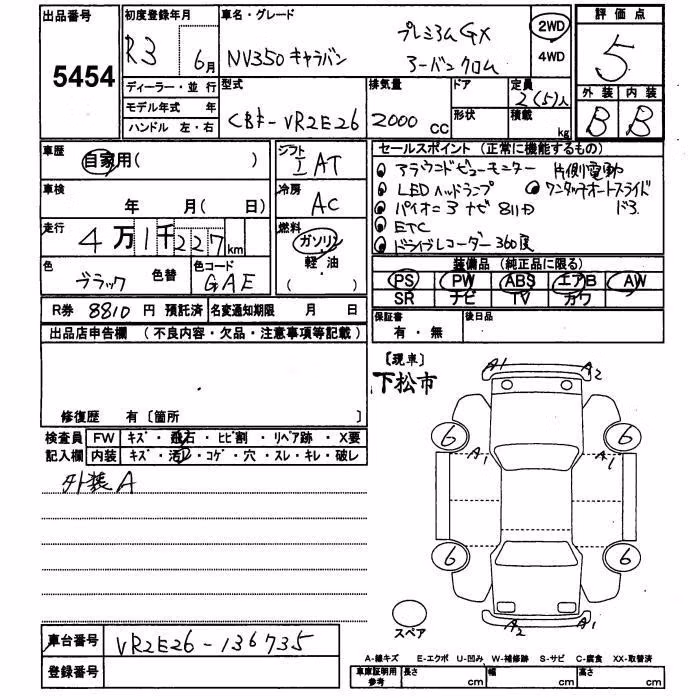 出品番号 5454
初度登録年月 R3 6月
車名・グレード NV350キャラバン プレミアムGX アーバンクロム
2WD
4WD
評価点 5
外装 内装
B B
ディーラー・並行
モデル年式 年
ハンドル 左・右
型式 CBF-VR2E26
排気量 2000 CC
ドア
形状
定員 2(5)人
積載 kg
車歴 自家用( )
シフト I AT
セールスポイント (正常に機能するもの)
アラウンドビューモニター 片側電動
LEDヘッドランプ ワンタッチオートスライド
パイオニアナビ 8インチ ドア
ETC
ドライブレコーダー 360度
車検 年 月( 日)
冷房 AC
走行 4万1千227km
燃料 ガソリン
軽・油
色 ブラック 色替
色コード GAE
装備品 (純正品に限る)
PS PW ABS エアB AW
SR ナビ TV カワ
R券 8810 円 預託済
名変通知期限 月 日
保証書 有・無
後日品
出品店申告欄 (不良内容・欠品・注意事項等記載)
修復歴 有 〔箇所 〕
〔現車〕
下松市
検査員 FW キズ・飛石・ヒビ割・リペア跡・X要
記入欄 内装 キズ・汚れ・コゲ・穴・スレ・キレ・破レ
外装A
A1 A2
6 A1 A1 6
6 6
A2 A1
スペア
車台番号 VR2E26-136735
登録番号
A-線キズ E-エクボ U-凹み W-補修跡 S-サビ C-腐食 XX-取替済
車庫証明用参考 長さ cm 幅 cm 高さ cm